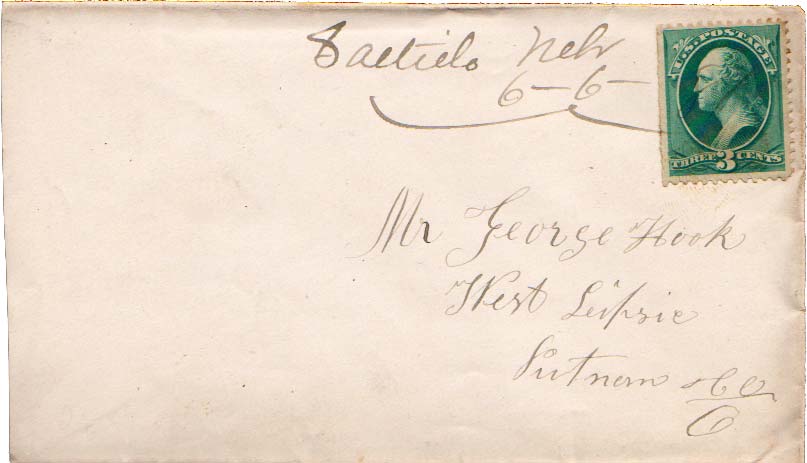 Neb
6-6-
U.S. POSTAGE
THREE 3 CENTS
Mr George Hook
West Leipsic
Putnam Co
O